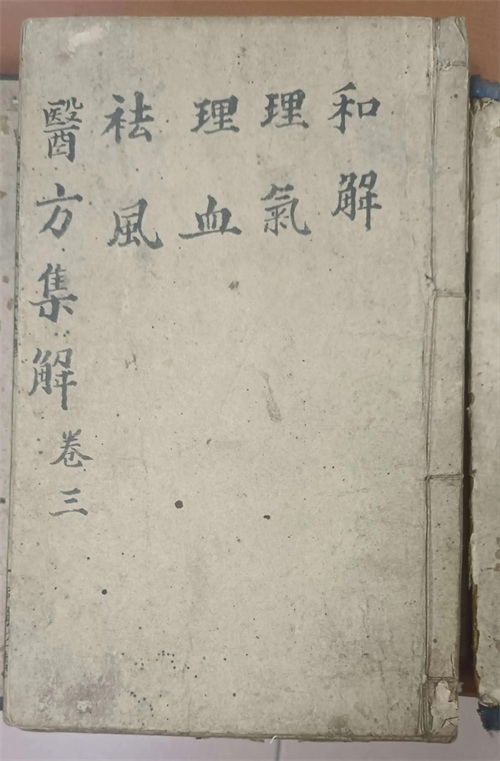 和解
理氣
理血
祛風
醫方集解卷三